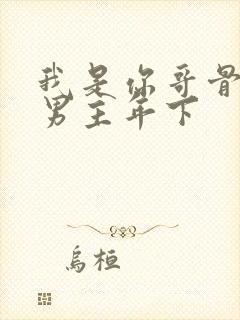 我是你哥骨
男主年下
烏桓